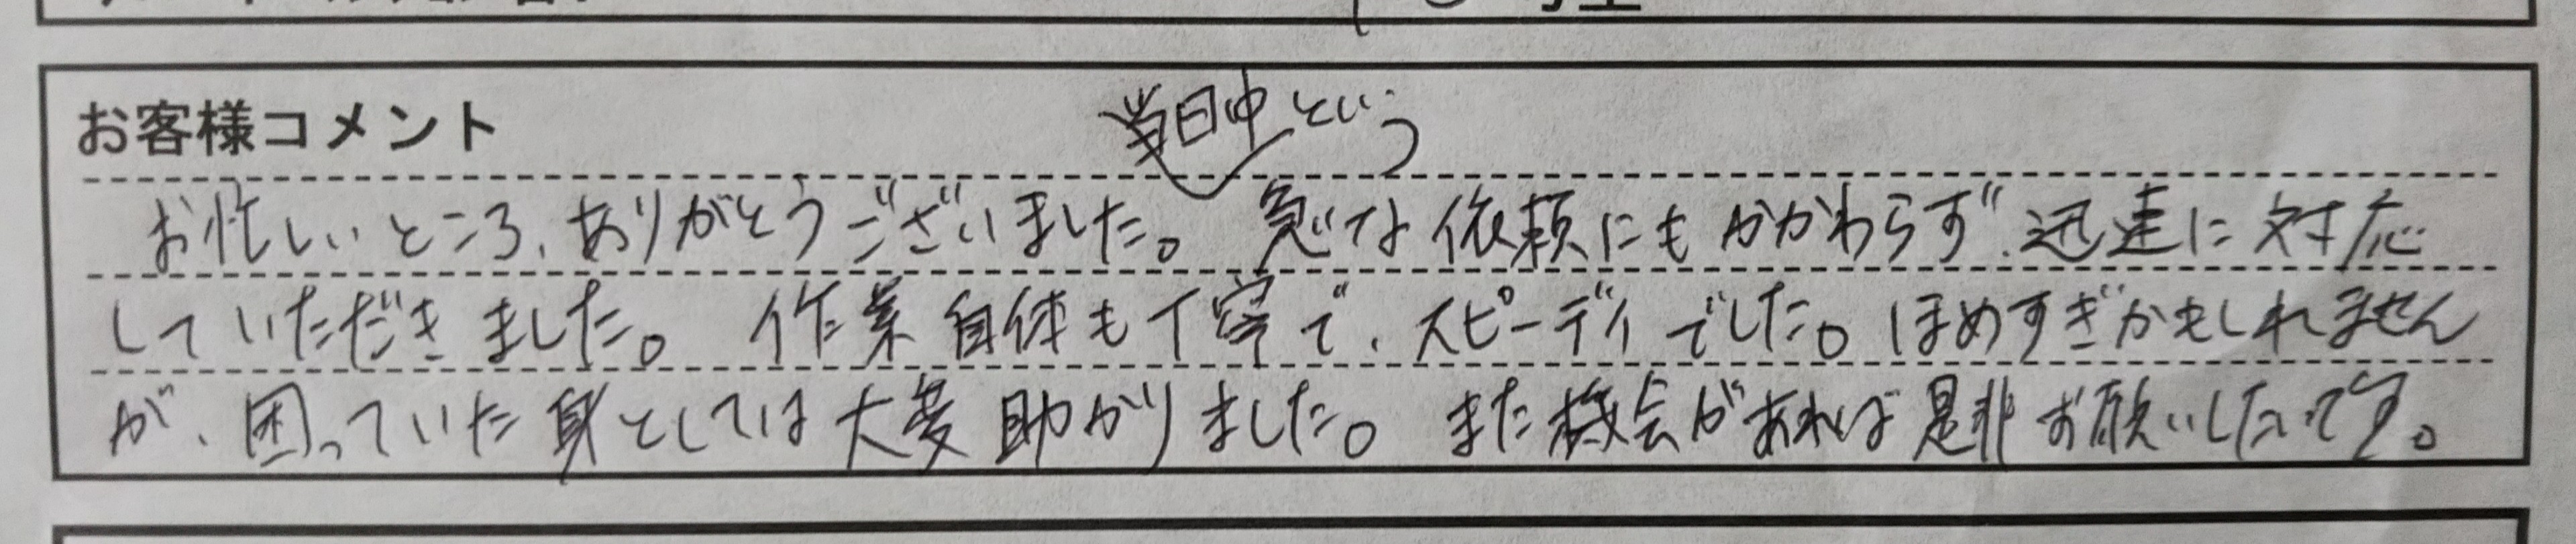 お客様コメント
当日中という
お忙しいところ、ありがとうございました。急な依頼にもかかわらず、迅速に対応
していただきました。作業自体も丁寧で、スピーディでした。ほめすぎかもしれません
が、困っていた身としては大変助かりました。また機会があれば是非お願いしたいです。